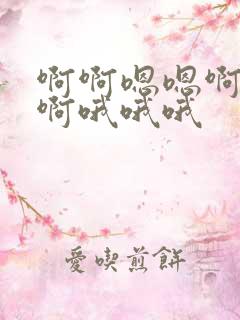 啊啊嗯嗯啊
啊哦哦哦
愛喫煎餅